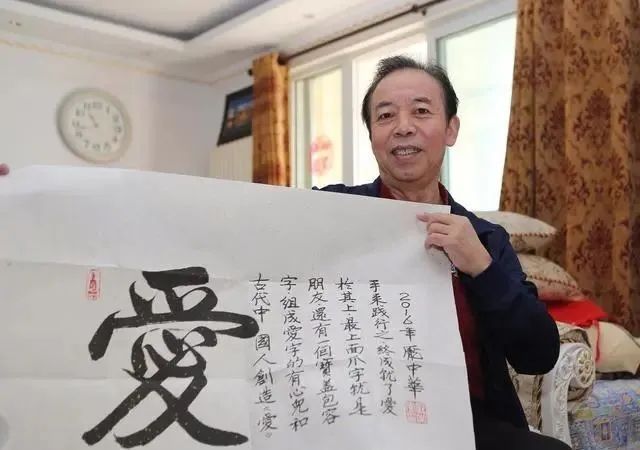 愛
古代中國人創造《愛》
字,組成愛字的有心兒和
朋友,還有一個寶蓋包容
於其上,最上面爪字就是
手來踐行之,終成就了愛
2012年龐中華